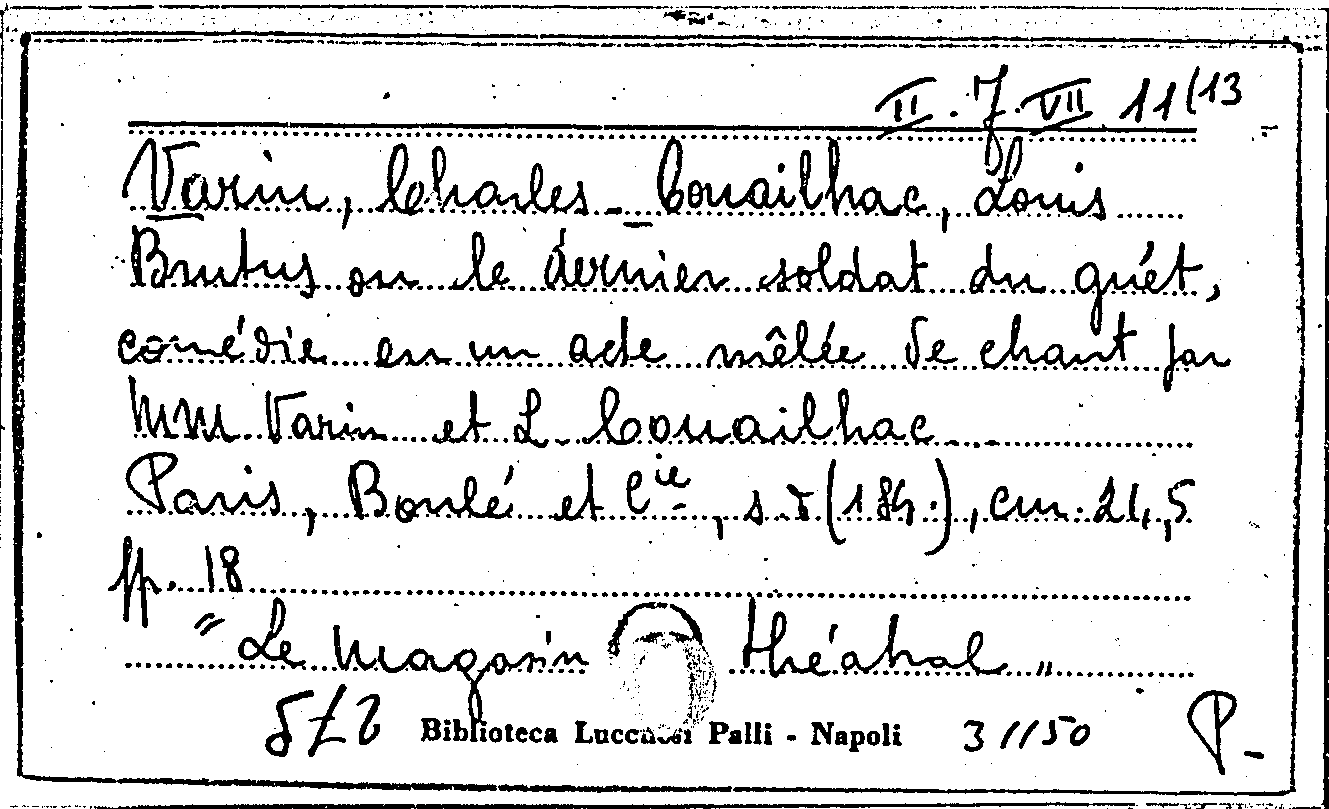 II. J. VII 11(13
Varin, Charles - Couailhac, Louis
Brutus ou le dernier soldat du guét,
comédie en un acte mêlée de chant par
MM Varin et L. Couailhac
Paris, Boulé et Cie, s d (184.), cm. 21,5
pp. 18
"Le Magasin théatral"
Biblioteca Lucchesi Palli - Napoli 31150
P-